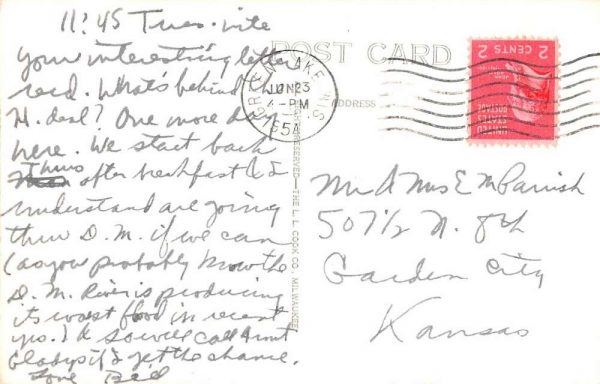 11:45 Tues. nite
your interesting letter
recd. What's behind the
H. deal? One more day
here. We start back
Thurs after breakfast & I
understand are going
thru D. M. if we can
(as you probably know the
D. M. River is producing
its worst flood in recent
yrs.) so will call Aunt
Gladys if I get the chance.
Love
POST CARD
ADDRESS
GREEN LAKE WIS.
JUN 23
4-PM
1954
2 CENTS 2
UNITED
STATES
POSTAGE
RESERVED—THE L. L. COOK CO. MILWAUKEE
Mr & Mrs E M Parrish
507½ N. 8th
Garden City
Kansas